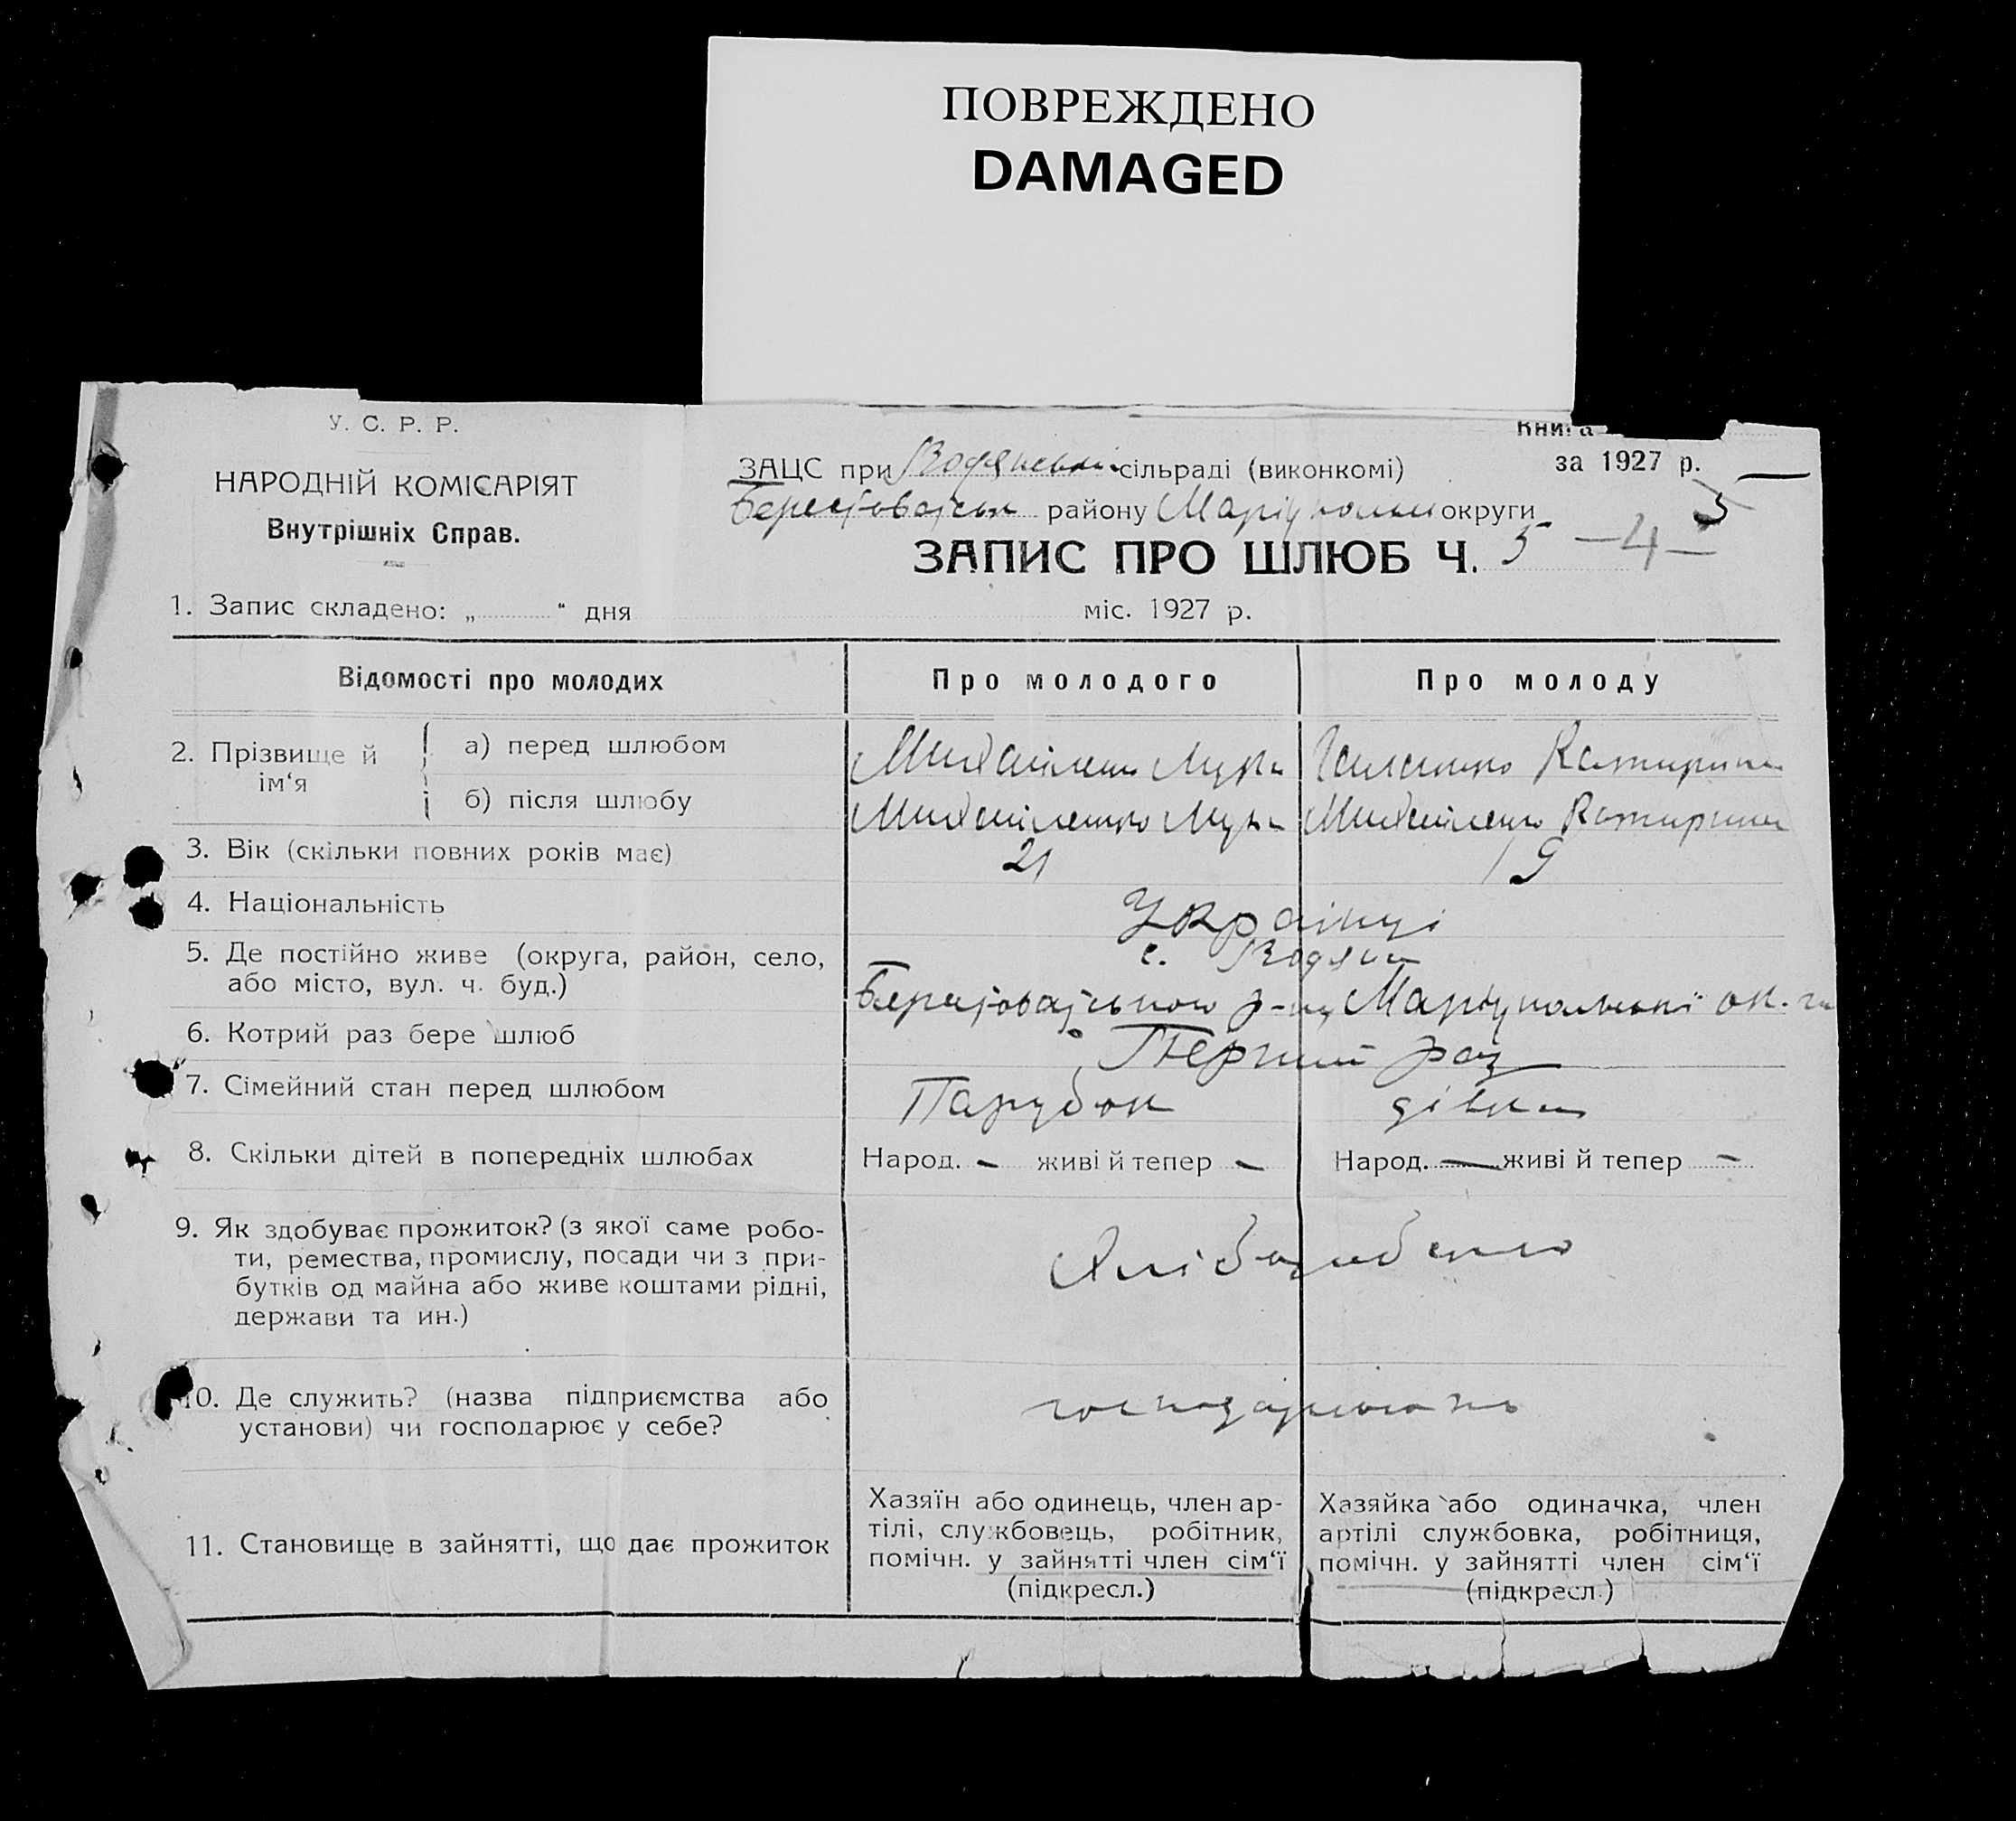 ПОВРЕЖДЕНО
DAMAGED
У. С. Р. Р.
НАРОДНІЙ КОМІСАРІЯТ
Внутрішніх Справ.
Книга
за 1927 р.
ЗАЦС при Водянській сільраді (виконкомі)
району округи
ЗАПИС ПРО ШЛЮБ Ч. 5 —4—
5
1. Запис складено: „ “ дня міс. 1927 р.
Відомості про молодих Про молодого Про молоду
2. Прізвище й ім‘я
а) перед шлюбом Катирина
б) після шлюбу Катирина
3. Вік (скільки повних років має) 21 19
4. Національність Українці
5. Де постійно живе (округа, район, село, с. Водяни
або місто, вул. ч. буд.)
6. Котрий раз бере шлюб Перший раз
7. Сімейний стан перед шлюбом Парубок дівка
8. Скільки дітей в попередніх шлюбах Народ. – живі й тепер – Народ. — живі й тепер –
9. Як здобуває прожиток? (з якої саме робо-
ти, ремества, промислу, посади чи з при-
бутків од майна або живе коштами рідні,
держави та ин.)
10. Де служить? (назва підприємства або
установи) чи господарює у себе?
11. Становище в зайнятті, що дає прожиток
Хазяїн або одинець, член ар-
тілі, службовець, робітник,
помічн. у зайнятті член сім‘ї
(підкресл.)
Хазяйка або одиначка, член
артілі службовка, робітниця,
помічн. у зайнятті член сім‘ї
(підкресл.)